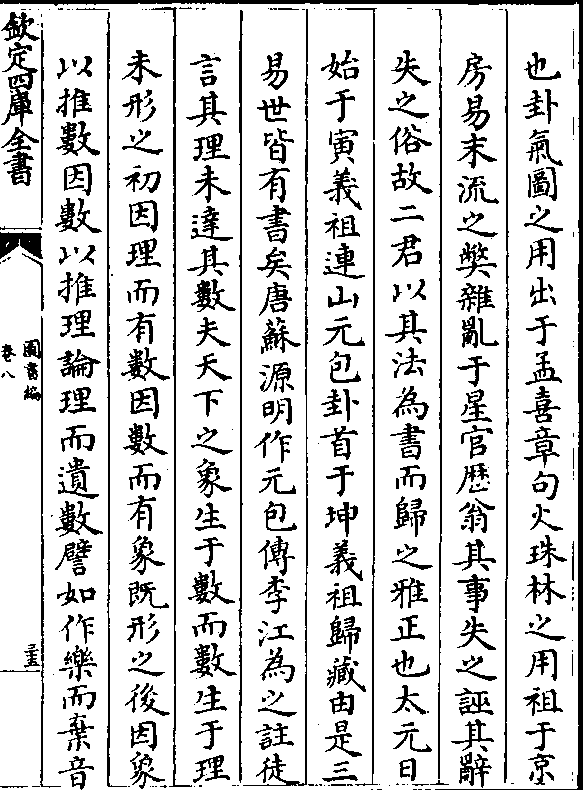 也卦氣圖之用出于孟喜章句火珠林之用祖于京
房易末流之弊雜亂于星官歴翁其事失之誣其辭
失之俗故二君以其法為書而歸之雅正也太元日
始于寅義祖連山元包卦首于坤義祖歸藏由是三
易世皆有書矣唐蘇源明作元包傳李江為之註徒
言其理未達其數夫天下之象生于數而數生于理
未形之初因理而有數因數而有象既形之後因象
以推數因數以推理論理而遺數譬如作樂而棄音
欽定四庫全書
圖書編
卷八
三五